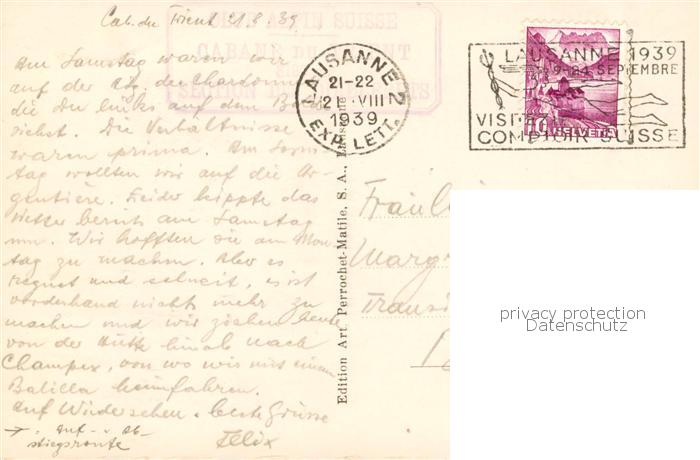 Cab. du Trient 21.8.39
CLUB ALPIN SUISSE
CABANE DU TRIENT
SECTION
Am Samstag waren wir
auf der Aig. du Chardonnet
die Du links auf dem Bilde
siehst. Die Verhältnisse
waren prima. Am Sonn-
tag wollten wir auf die Ar-
gentière. Leider kippte das
Wetter bereits am Samstag
um. Wir hofften sie am Mon-
tag zu machen. Aber es
regnet und schneit, es ist
vorderhand nichts mehr zu
machen und wir ziehen heute
von der Hütte hinab nach
Champex, von wo wir mit einem
Balilla heimfahren.
Auf Wiedersehen. beste Grüsse
Felix
→ Auf- u Ab-
stiegsroute
Edition Art. Perrochet-Matile, S. A., Lausanne
LAUSANNE 2
21-22
21. VIII
1939
EXP. LETT.
LAUSANNE 1939
9-24 SEPTEMBRE
VISITEZ
COMPTOIR SUISSE
10 HELVETIA
Fräulein
Margr
Transi
privacy protection
Datenschutz